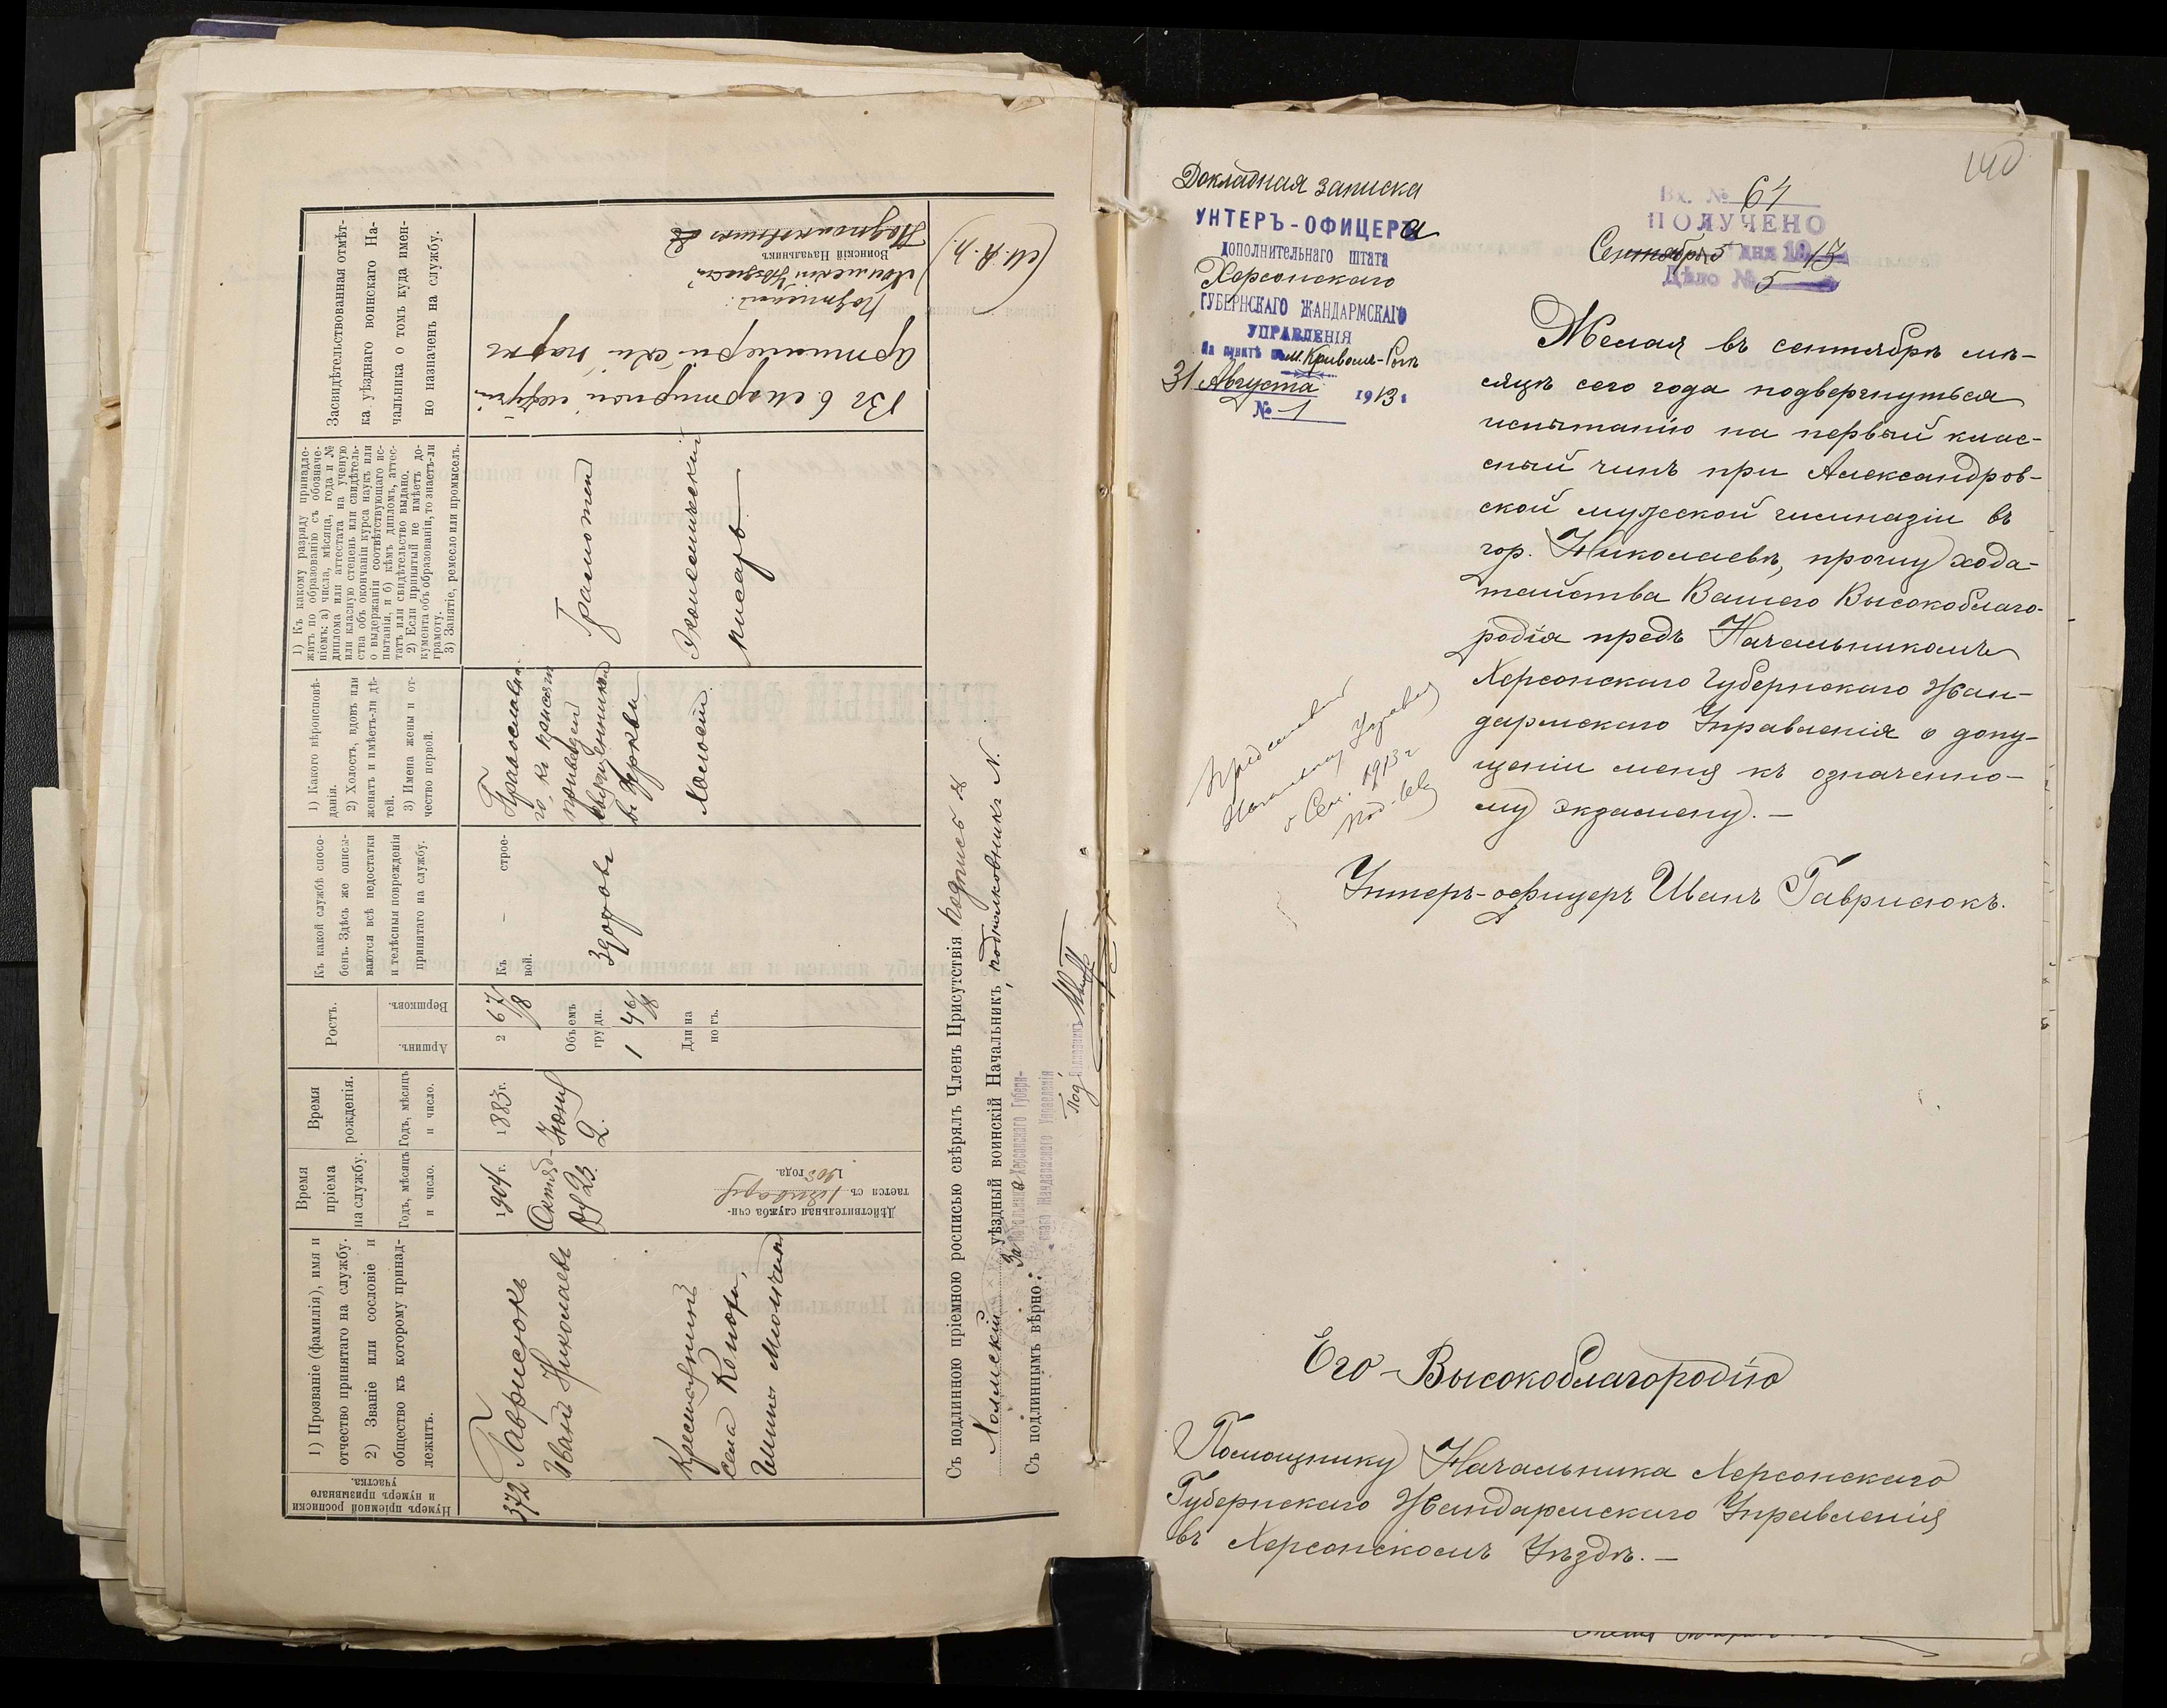 Нумеръ пріемной росписки
и нумеръ призывнаго
участка.
1) Прозваніе (фамилія), имя и
отчество принятаго на службу.
2) Званіе или сословіе и
общество къ которому принад-
лежитъ.
Время
пріема
на службу.
Годъ, мѣсяцъ
и число.
Время
рожденія.
Годъ, мѣсяцъ
и число.
Ростъ.
Аршинъ.
Вершковъ.
Къ какой службѣ спосо-
бенъ. Здѣсь же описы-
ваются всѣ недостатки
и тѣлесныя поврежденія
принятаго на службу.
1) Какого вѣроисповѣ-
данія.
2) Холостъ, вдовъ или
женатъ и имѣетъ-ли дѣ-
тей.
3) Имена жены и от-
чество первой.
1) Къ какому разряду принадле-
житъ по образованію съ обозначе-
ніемъ: а) числа, мѣсяца, года и №
диплома или аттестата на ученую
или класную степень или свидѣтель-
ства объ окончаніи курса наукъ или
о выдержаніи соотвѣтствующаго ис-
пытанія, и б) кѣмъ дипломъ, аттес-
татъ или свидѣтельство выдано.
2) Если принятый не имѣетъ до-
кумента объ образованіи, то знаетъ-ли
грамоту.
3) Занятіе, ремесло или промыселъ.
Засвидѣтельствованная отмѣт-
ка уѣзднаго воинскаго На-
чальника о томъ куда имен-
но назначенъ на службу.
372
Гаврисюкъ
Иванъ Николаевъ
Крестьянинъ
села Копоры,
гмины
1904 г.
Октяб-
ря 23.
Дѣйствительная служба счи-
тается съ 1 января
1905 года.
1883 г.
Іюня
2.
2 6 7/8
Объемъ
груди.
1 4 6/8
Длина
ногъ.
Къ – строе-
вой.
Здоровъ
Православна-
го, къ присягѣ
приведенъ
священникомъ
въ церкви
Холостъ.
Грамотенъ
Экономическій
писарь
Въ 6 мортирный
артиллерійскій паркъ
Подписалъ:
Холмскій Уѣздный
Воинскій Начальникъ
Подполковникъ
(М. П.)
Съ подлинною пріемною росписью свѣрялъ Членъ Присутствія подпись
Холмскій уѣздный воинскій Начальникъ, подполковникъ N.
Съ подлиннымъ вѣрно:
За Начальника Херсонскаго Губерн-
скаго Жандармскаго Управленія
Подполковникъ
140
Докладная записка
УНТЕРЪ-ОФИЦЕРа
дополнительнаго штата
Херсонскаго
ГУБЕРНСКАГО ЖАНДАРМСКАГО
УПРАВЛЕНІЯ
на пунктѣ въ м. Кривомъ-Рогѣ
31 Августа 1913 г.
№ 1
Вх. № 61
ПОЛУЧЕНО
Сентября 5 дня 1913
Дѣло № 5
Желая въ сентябрѣ мѣ-
сяцѣ сего года подвергнуться
испытанію на первый клас-
сный чинъ при Александров-
ской мужской гимназіи въ
гор. Николаевѣ, прошу хода-
тайства Вашего Высокоблаго-
родія предъ Начальникомъ
Херсонскаго Губернскаго Жан-
дармскаго Управленія о допу-
щеніи меня къ означенно-
му экзамену. –
Представляю
Начальнику Управл.
5 Сен. 1913 г
Унтеръ-офицеръ Иванъ Гаврисюкъ.
Его-Высокоблагородію
Помощнику Начальника Херсонскаго
Губернскаго Жандармскаго Управленія
въ Херсонскомъ Уѣздѣ. –